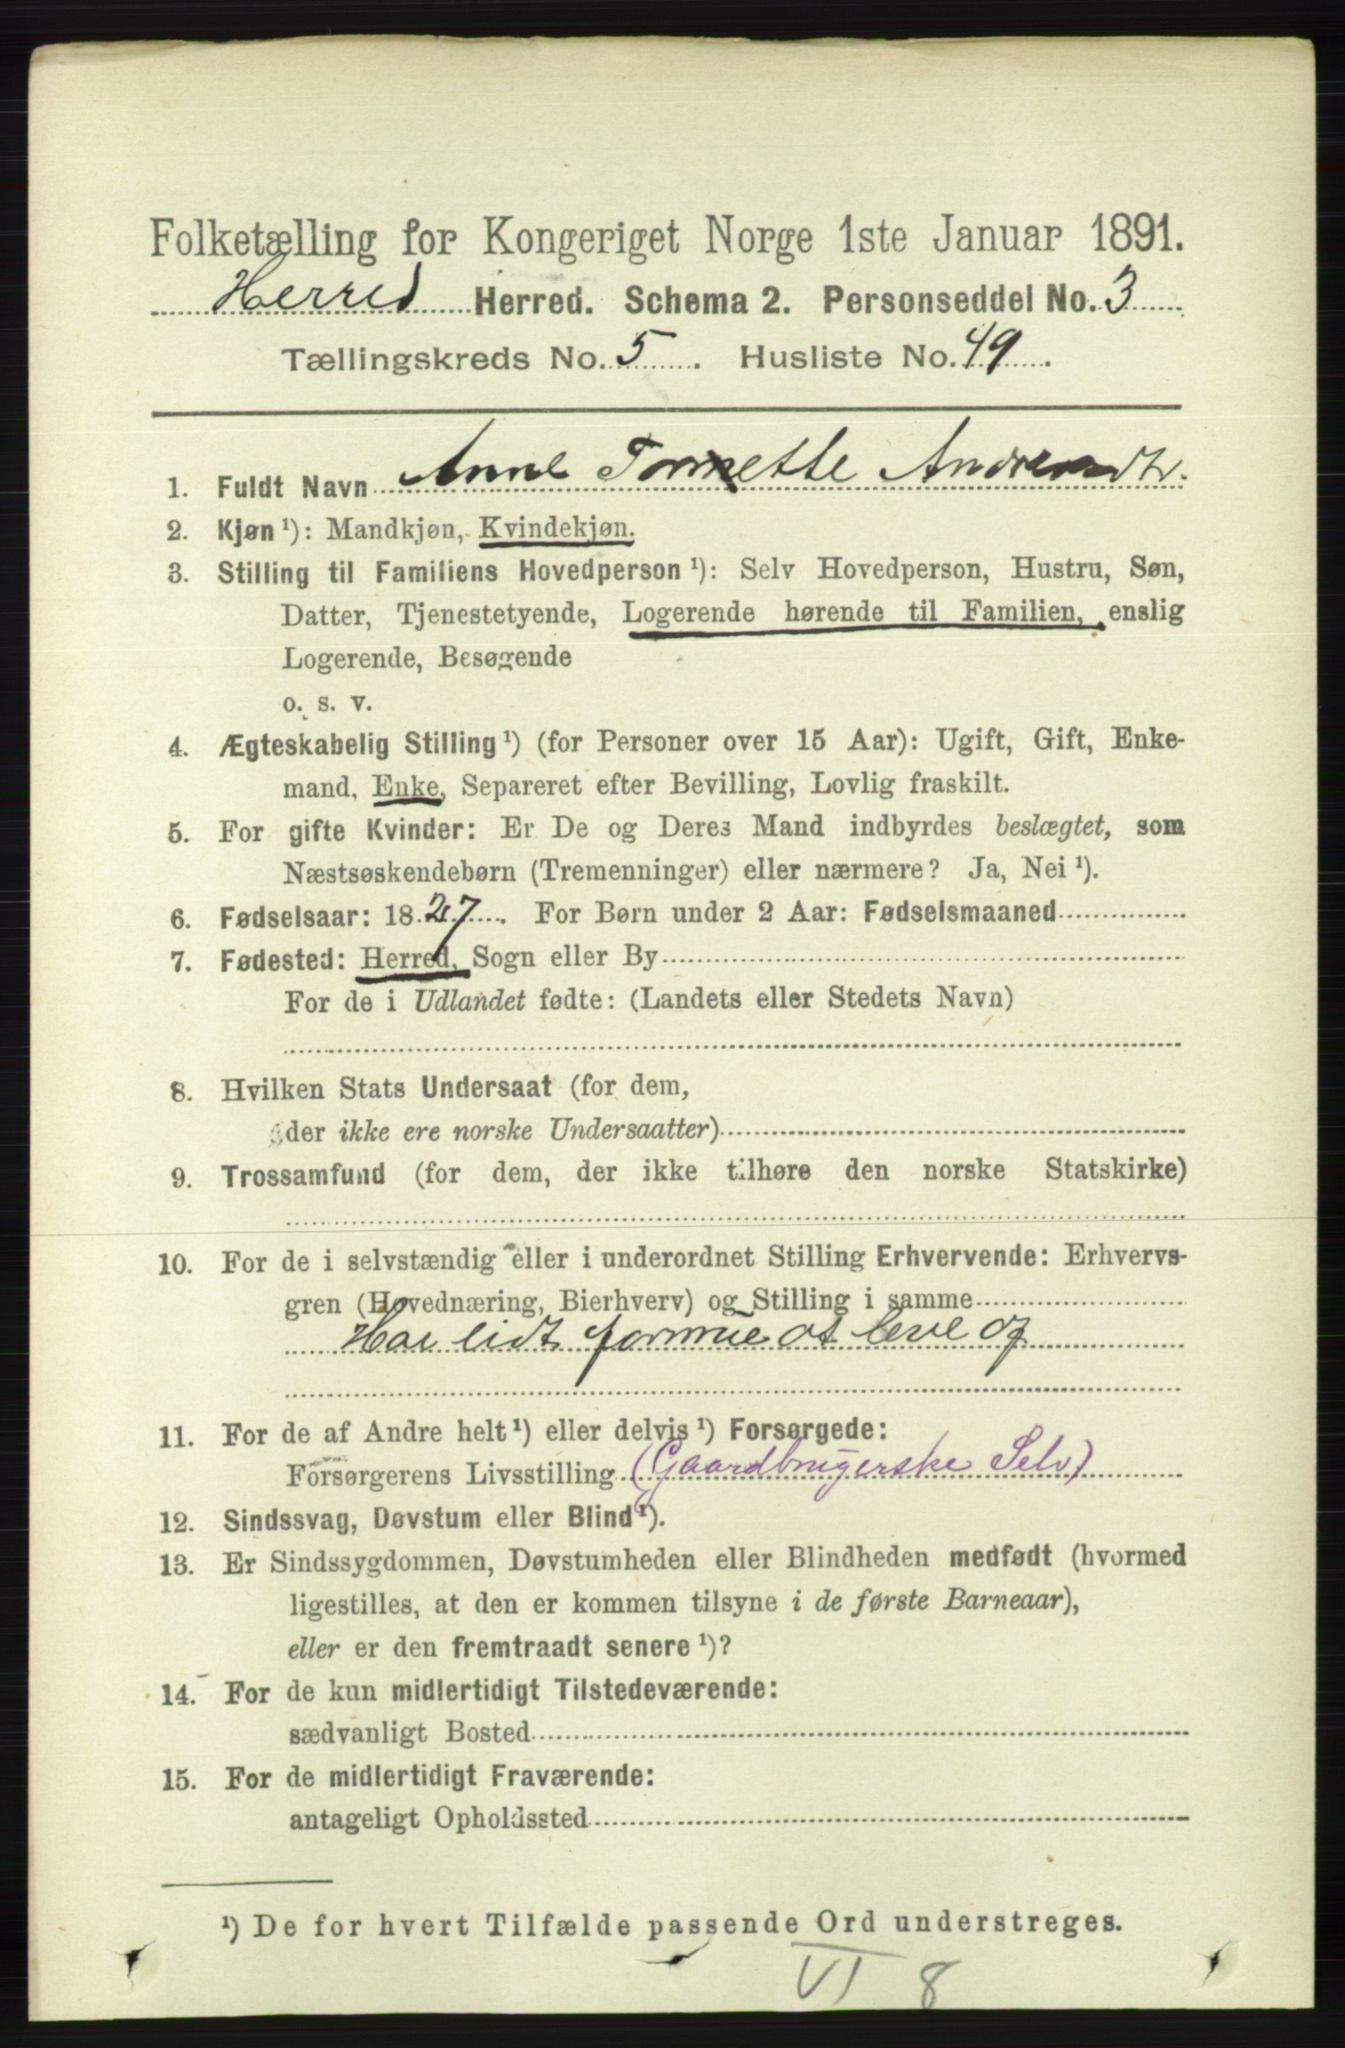 Folketælling for Kongeriget Norge 1ste Januar 1891.
Herred Herred. Schema 2. Personseddel No. 3
Tællingskreds No. 5. Husliste No. 49.
1. Fuldt Navn Anne
2. Kjøn ¹): Mandkjøn, Kvindekjøn.
3. Stilling til Familiens Hovedperson ¹): Selv Hovedperson, Hustru, Søn,
Datter, Tjenestetyende, Logerende hørende til Familien, enslig
Logerende, Besøgende
o. s. v.
4. Ægteskabelig Stilling ¹) (for Personer over 15 Aar): Ugift, Gift, Enke-
mand, Enke, Separeret efter Bevilling, Lovlig fraskilt.
5. For gifte Kvinder: Er De og Deres Mand indbyrdes beslægtet, som
Næstsøskendebørn (Tremenninger) eller nærmere? Ja, Nei ¹).
6. Fødselsaar: 1827. For Børn under 2 Aar: Fødselsmaaned
7. Fødested: Herred, Sogn eller By
For de i Udlandet fødte: (Landets eller Stedets Navn)
8. Hvilken Stats Undersaat (for dem,
der ikke ere norske Undersaatter)
9. Trossamfund (for dem, der ikke tilhøre den norske Statskirke)
10. For de i selvstændig eller i underordnet Stilling Erhvervende: Erhvervs-
gren (Hovednæring, Bierhverv) og Stilling i samme
Har lidt formue at leve af
11. For de af Andre helt ¹) eller delvis ¹) Forsørgede:
Forsørgerens Livsstilling (Gaardbrugerske Selv)
12. Sindssvag, Døvstum eller Blind ¹).
13. Er Sindssygdommen, Døvstumheden eller Blindheden medfødt (hvormed
ligestilles, at den er kommen tilsyne i de første Barneaar),
eller er den fremtraadt senere ¹)?
14. For de kun midlertidigt Tilstedeværende:
sædvanligt Bosted
15. For de midlertidigt Fraværende:
antageligt Opholdssted
¹) De for hvert Tilfælde passende Ord understreges.
VI 8